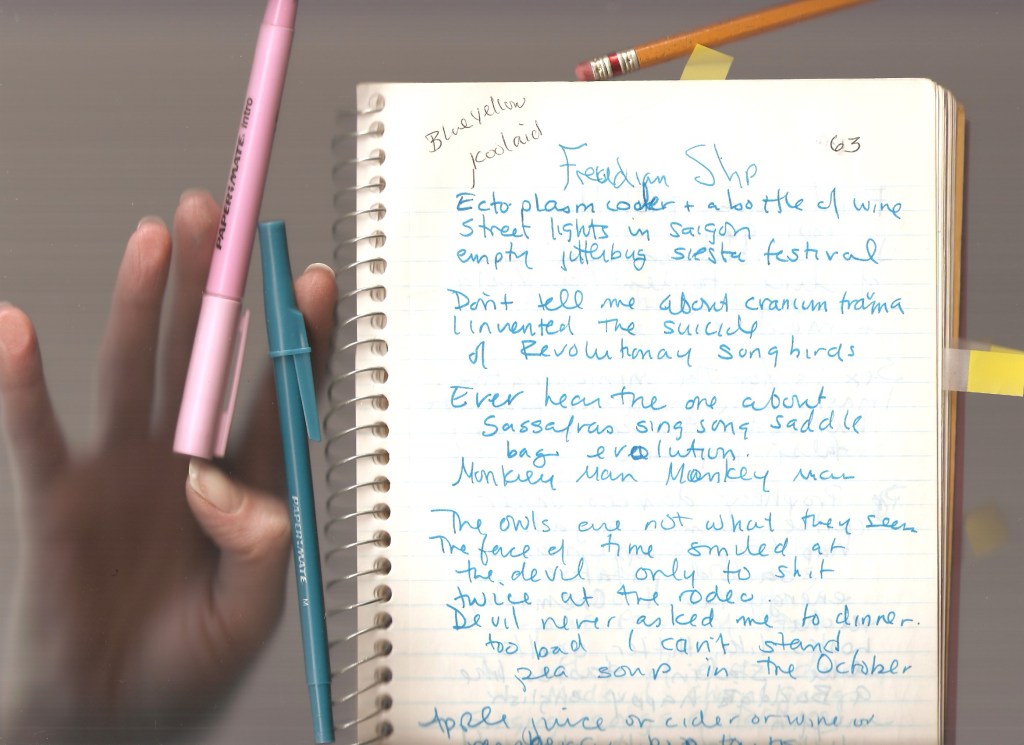 PAPER:MATE. intro
PAPER:MATE M
Blue yellow
koolaid
63
Freudian Slip
Ectoplasm cooler + a bottle of wine
Street lights in saigon
empty jitterbug siesta festival
Don't tell me about cranium trauma
I invented the suicide
of Revolutionay songbirds
Ever hear the one about
Sassafras sing song saddle
bag evolution.
Monkey Man Monkey man
The owls are not what they seem
The face of time smiled at
the devil only to shit
twice at the rodeo.
Devil never asked me to dinner.
too bad I can't stand
pea soup in the October
Apple juice or cider or wine or